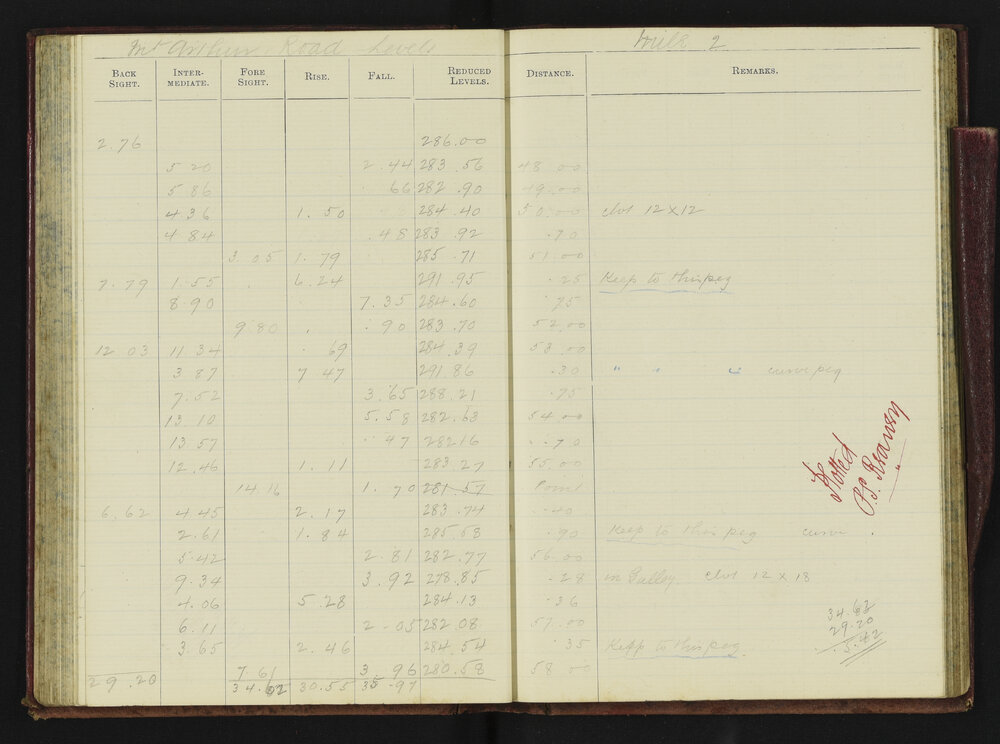 Mt Arthur Road Levels Mile 2
BACK SIGHT. INTER-MEDIATE. FORE SIGHT. RISE. FALL. REDUCED LEVELS. DISTANCE. REMARKS.
2.76 286.00
5 20 2.44 283.56 48.00
5 86 .66 282.90 49.00
4 36 1.50 284.40 50.00 clvt 12 x 12
4 84 .48 283.92 .70
3 05 1.79 285.71 51.00
7.79 1.55 6.24 291.95 .25 Keep to this peg
8 90 7.35 284.60 .75
9 80 .90 283.70 52.00
12 03 11 34 .69 284.39 53.00
3 87 7 47 291.86 .30 " " " curve peg
7.52 3.65 288.21 .75
13 10 5.58 282.63 54.00
13 57 .47 28216 .70
12.46 1.11 283.27 55.00
14.16 1.70 281.57 Point
6.62 4.45 2.17 283.74 .40
2.61 1.84 285.58 .90 Keep to this peg curve .
5.42 2.81 282.77 56.00
9.34 3.92 278.85 .28 in Gully clvt 12 x 18
4.06 5.28 284.13 .36
6.11 2.05 282.08 57.00
3.65 2.46 284.54 .35 Keep to this peg
7 61 3.96 280.58 58 00
29.20 34.62 30.55 35.97
Plotted
34.62
29.20
5.42